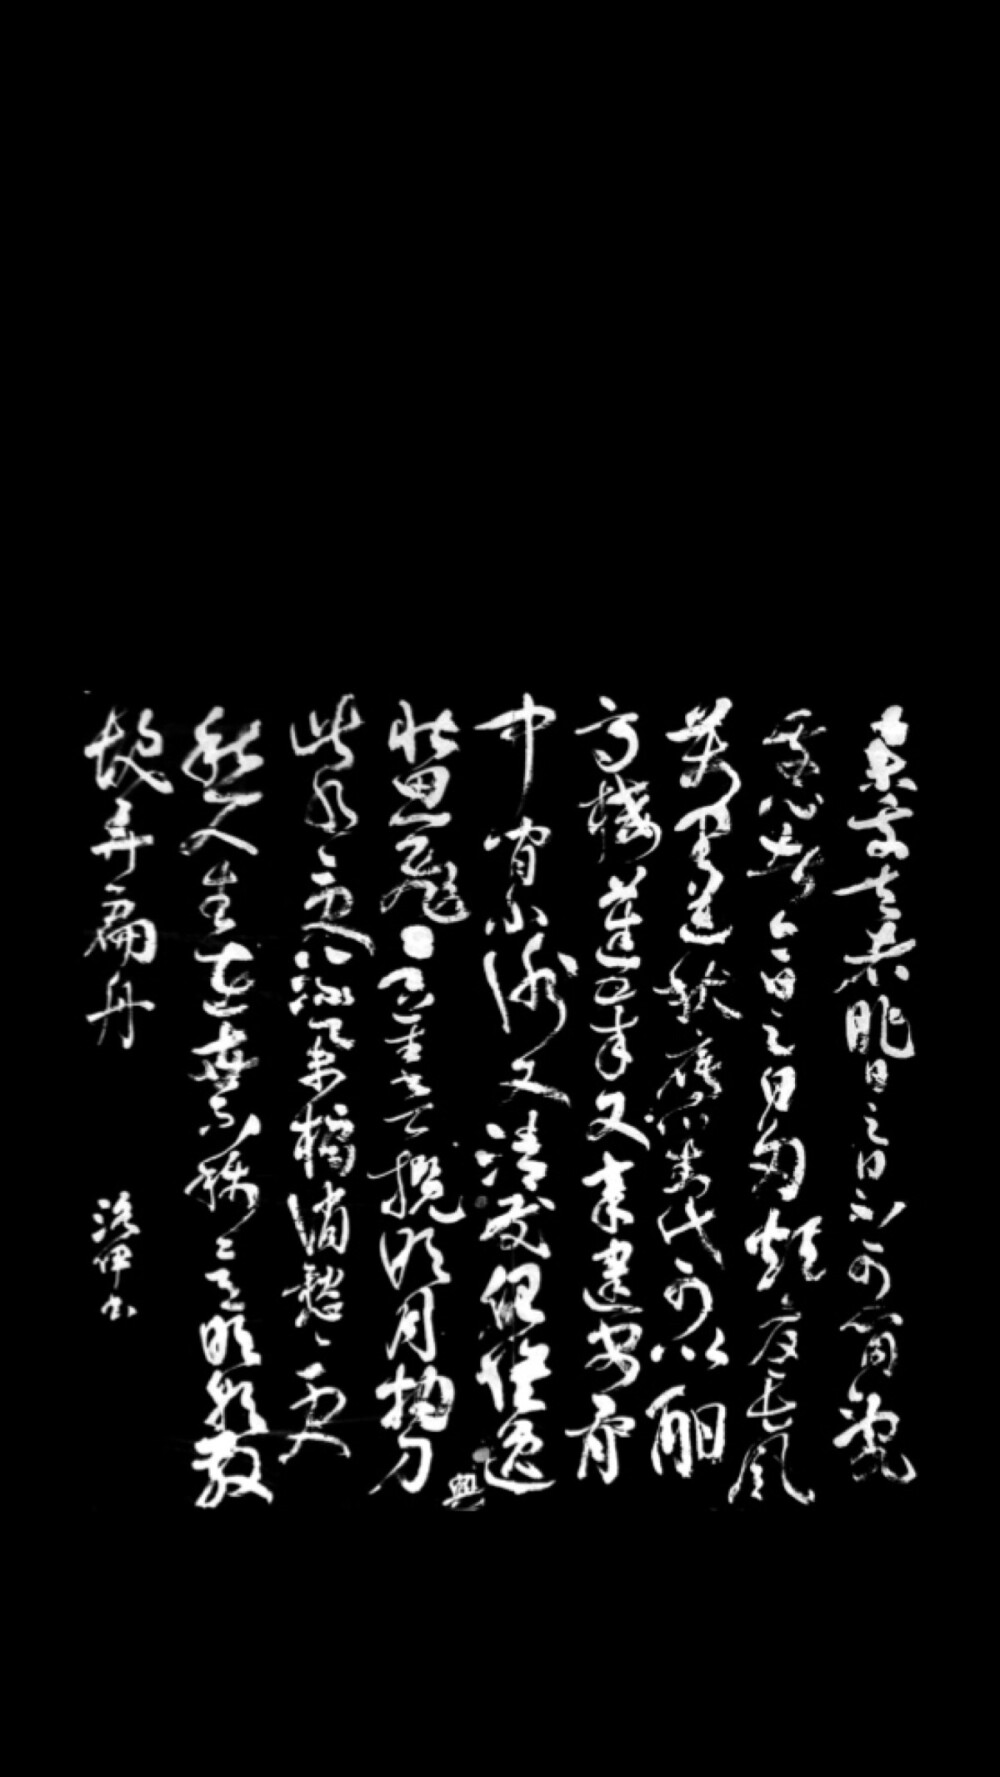 棄我去者昨日之日不可留亂
我心者今日之日多煩憂長風
萬里送秋雁對此可以酣
高樓蓬萊文章建安骨
中間小謝又清發俱懷逸興
壯思飛欲上青天攬明月抽刀
斷水水更流舉杯消愁愁更
愁人生在世不稱意明朝散
髮弄扁舟